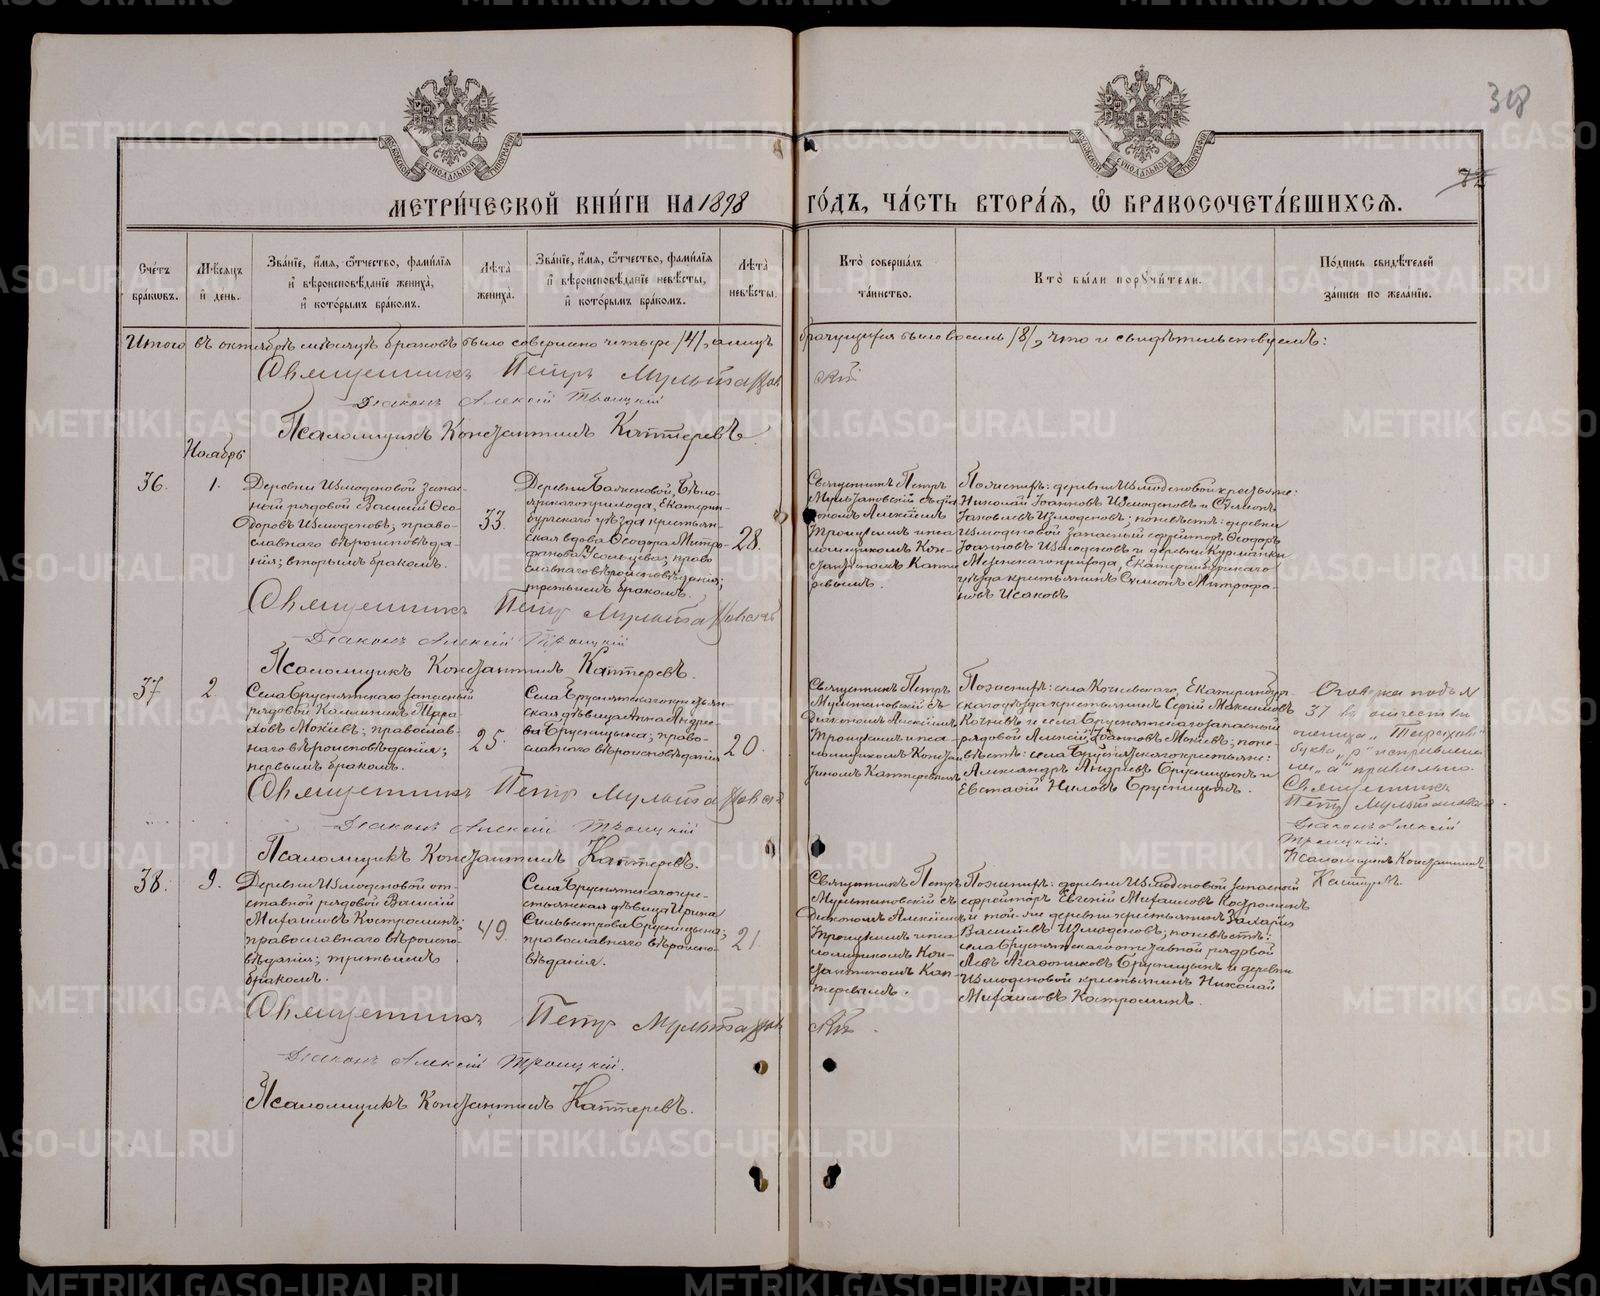 318
МОСКОВСКОЙ СѴНОДАЛЬНОЙ ТИПОГРАФІИ
МОСКОВСКОЙ СѴНОДАЛЬНОЙ ТИПОГРАФІИ
МЕТРИ́ЧЕСКОЙ КНИ́ГИ НА 1898 ГО́ДЪ, ЧА́СТЬ ВТОРА́Я, Ѡ БРАКОСОЧЕТА́ВШИХСЯ.
Сче́тъ
бра́ковъ.
Мѣ́сяцъ
и́ день.
Зва́нїе, и́мя, ѻ́тчество, фами́лїя
и́ вѣроисповѣ́данїе жениха̀,
и́ кото́рымъ бра́комъ.
Лѣ́та
жениха̀.
Зва́нїе, и́мя, ѻ́тчество, фами́лїя
и́ вѣроисповѣ́данїе невѣ́сты,
и́ кото́рымъ бра́комъ.
Лѣ́та
невѣ́сты.
Кто̀ соверша́лъ
та́инство.
Кто̀ бы́ли порꙋчи́тели.
По́дпись свидѣ́телей
за́писи по жела́нїю.
Итого въ октябрѣ мѣсяцѣ браковъ было совершено четыре /4/, а лицъ брачущихся было восемь /8/, что и свидѣтельствуемъ:
Священникъ Петръ Мультановскій
Діаконъ Алексій Троицкій
Псаломщикъ Константинъ Каптеревъ.
Ноябрь
36.
1.
Деревни Измоденовой запас-
ный рядовой Василій Ѳео-
доровъ Измоденовъ; право-
славнаго вѣроисповѣда-
нія; вторымъ бракомъ.
33.
Деревни Баженовой, Бѣло-
ярскаго прихода, Екатерин-
бургскаго уѣзда крестьян-
ская вдова Ѳеодора Митро-
фанова Усольцева; право
славнаго вѣроисповѣданія;
третьимъ бракомъ.
28.
Священникъ Петръ
Мультановскій съ діа
кономъ Алексіемъ
Троицкимъ и пса
ломщикомъ Кон-
стантиномъ Капте
ревымъ.
По женихѣ: деревни Измоденовой крестьяне:
Николай Іоанновъ Измоденовъ и Сѵмеонъ
Іаковлевъ Измоденовъ; по невѣстѣ: деревни
Измоденовой запасный ефрейторъ Ѳеодоръ
Іоанновъ Измоденовъ и деревни Курманки
Мезенскаго прихода, Екатеринбургскаго
уѣзда крестьянинъ Сѵмеонъ Митрофа-
новъ Исаковъ
Священникъ Петръ Мультановскій
Діаконъ Алексій Троицкій
Псаломщикъ Константинъ Каптеревъ.
37
2.
Села Бруснятскаго запасный
рядовой Каллиникъ Тара
совъ Мокѣевъ; православ-
наго вѣроисповѣданія;
первымъ бракомъ.
25.
Села Бруснятскаго крестьян-
ская дѣвица Анна Андрее-
ва Брусницына; право-
славнаго вѣроисповѣданія
20.
Священникъ Петръ
Мультановскій съ
Діакономъ Алексіемъ
Троицкимъ и пса
ломщикомъ Констан
тиномъ Каптеревымъ
По женихѣ: села Кочневскаго, Екатеринбург
скаго уѣзда крестьянинъ Сергій Максимовъ
Кочневъ и села Бруснятскаго запасный
рядовой Алексій Іоанновъ Мокѣевъ; по не-
вѣстѣ: села Бруснятскаго крестьяне:
Александръ Андреевъ Брусницынъ и
Евстафій Ниловъ Брусницынъ.
Оговорка подъ №
37 въ отчествѣ
буква „р" исправлена
„а" правильно.
Священникъ
Петръ Мультановскій
Діаконъ Алексій
Троицкій.
Псаломщикъ Константинъ
Каптеревъ.
Священникъ Петръ Мультановскій
Діаконъ Алексій Троицкій
Псаломщикъ Константинъ Каптеревъ.
38.
9.
Деревни Измоденовой от-
ставной рядовой Василій
Михаиловъ Костроминъ;
православнаго вѣроиспо-
вѣданія; третьимъ
бракомъ.
49.
Села Бруснятскаго кре-
стьянская дѣвица Ирина
Сильвестрова Брусницына;
православнаго вѣроиспо-
вѣданія.
21.
Священникъ Петръ
Мультановскій съ
Діакономъ Алексіемъ
Троицкимъ и пса
ломщикомъ Кон-
стантиномъ Кап-
теревымъ.
По женихѣ: деревни Измоденовой запасный
ефрейторъ Евгеній Михаиловъ Костроминъ
и той-же деревни крестьянинъ Захарій
Васильевъ Измоденовъ; по невѣстѣ:
села Бруснятскаго отставной рядовой
Левъ Агафониковъ Брусницынъ и деревни
Измоденовой крестьянинъ Николай
Михаиловъ Костроминъ.
Священникъ Петръ Мультановскій
Діаконъ Алексій Троицкій.
Псаломщикъ Константинъ Каптеревъ.
METRIKI.GASO-URAL.RU